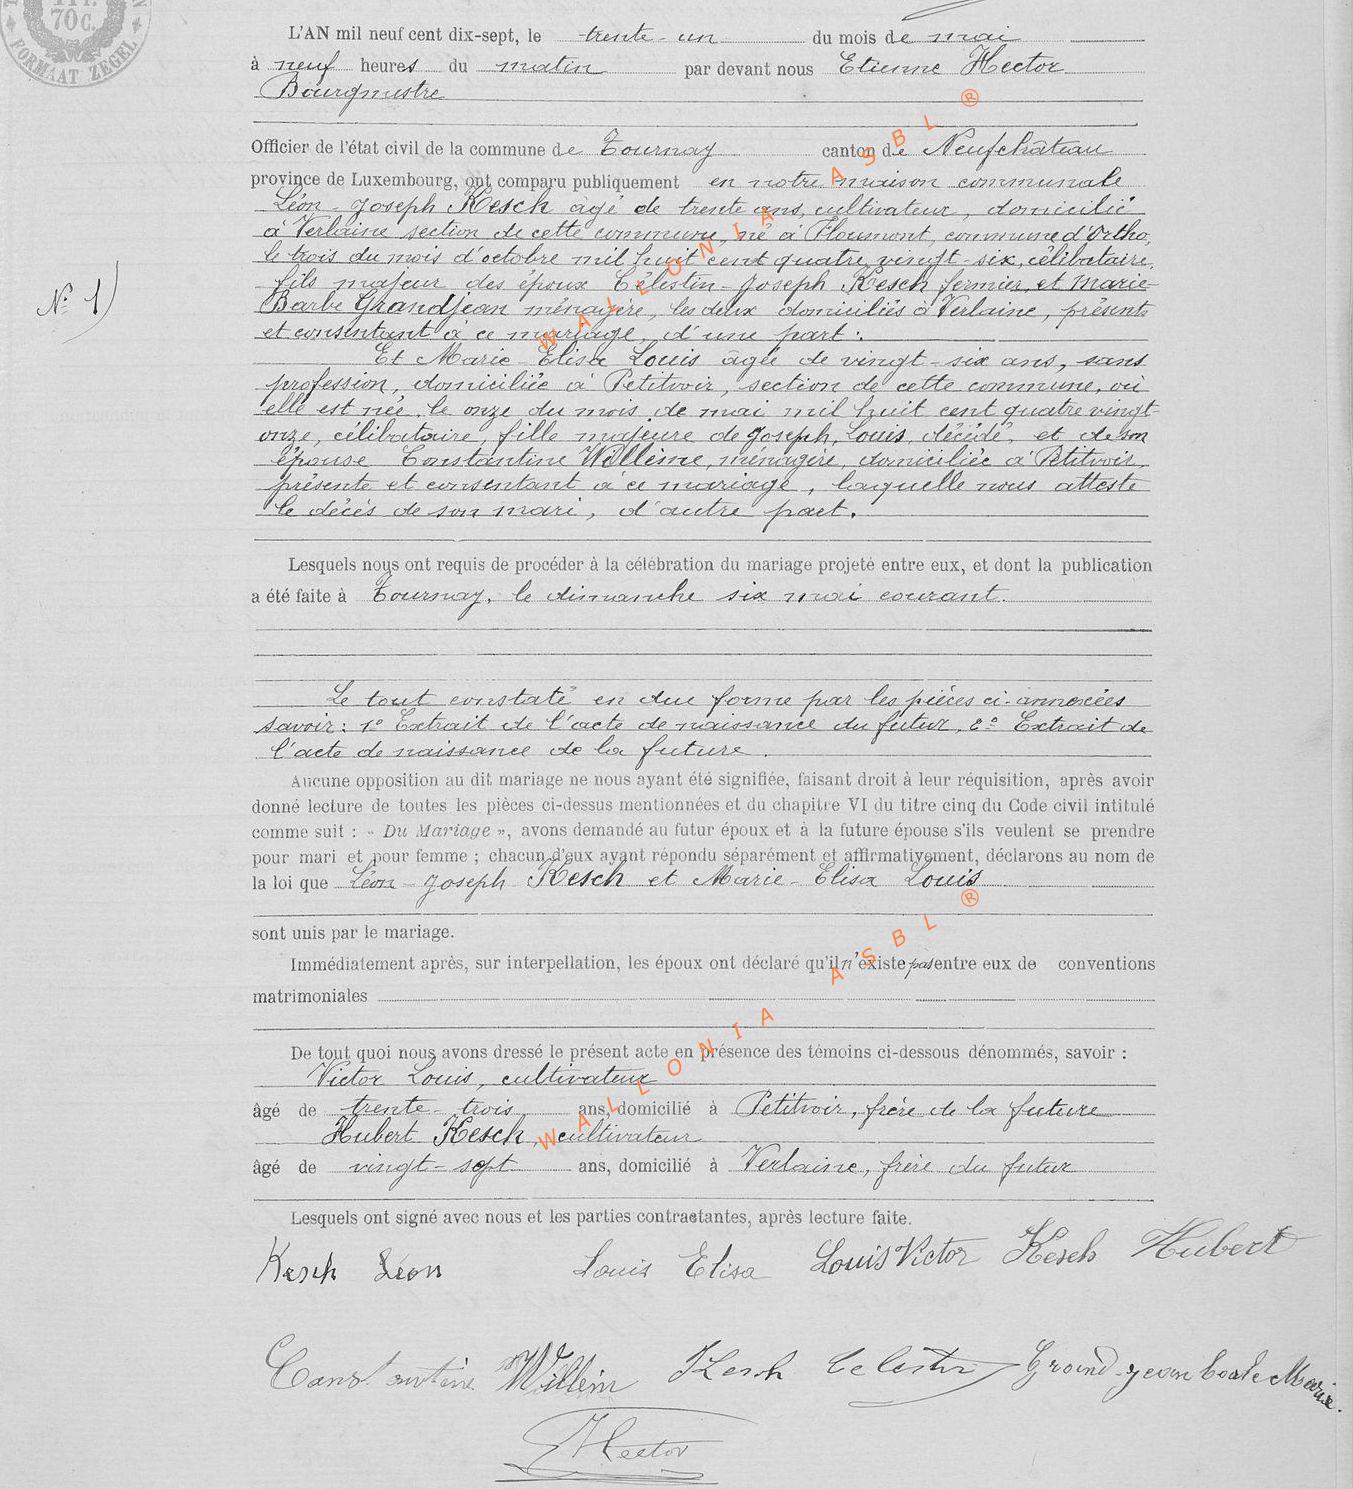 1 Fr.
70 C.
FORMAAT ZEGEL
L'AN mil neuf cent dix-sept, le trente-un du mois de mai
à neuf heures du matin par devant nous Etienne Hector
Bourgmestre
Officier de l'état civil de la commune de Tournay canton de Neufchâteau
province de Luxembourg, ont comparu publiquement en notre maison communale
Léon-Joseph Kesch âgé de trente ans, cultivateur, domicilié
à Verlaine section de cette commune, né à Floumont, commune d'Ortho,
le trois du mois d'octobre mil huit cent quatre vingt-six, célibataire,
fils majeur des époux Célestin-Joseph Kesch fermier, et Marie-
Barbe Grandjean ménagère, les deux domiciliés à Verlaine, présents
et consentant à ce mariage, d'une part:
N° 1)
Et Marie-Elisa Louis âgée de vingt-six ans, sans
profession, domiciliée à Petitvoir, section de cette commune, où
elle est née, le onze du mois de mai mil huit cent quatre vingt-
onze, célibataire, fille majeure de Joseph Louis décédé, et de son
épouse Constantine Willème, ménagère, domiciliée à Petitvoir,
présente et consentant à ce mariage, laquelle nous atteste
le décès de son mari, d'autre part.
Lesquels nous ont requis de procéder à la célébration du mariage projeté entre eux, et dont la publication
a été faite à Tournay, le dimanche six mai courant.
Le tout constaté en due forme par les pièces ci-annexées
savoir: 1° Extrait de l'acte de naissance du futur, 2° Extrait de
l'acte de naissance de la future.
Aucune opposition au dit mariage ne nous ayant été signifiée, faisant droit à leur réquisition, après avoir
donné lecture de toutes les pièces ci-dessus mentionnées et du chapitre VI du titre cinq du Code civil intitulé
comme suit : « Du Mariage », avons demandé au futur époux et à la future épouse s'ils veulent se prendre
pour mari et pour femme ; chacun d'eux ayant répondu séparément et affirmativement, déclarons au nom de
la loi que Léon-Joseph Kesch et Marie-Elisa Louis
sont unis par le mariage.
Immédiatement après, sur interpellation, les époux ont déclaré qu'il n'existe pas entre eux de conventions
matrimoniales
De tout quoi nous avons dressé le présent acte en présence des témoins ci-dessous dénommés, savoir :
Victor Louis, cultivateur
âgé de trente-trois ans, domicilié à Petitvoir, frère de la future
Hubert Kesch, cultivateur
âgé de vingt-sept ans, domicilié à Verlaine, frère du futur
Lesquels ont signé avec nous et les parties contractantes, après lecture faite.
Kesch Léon Louis Elisa Louis Victor Kesch Hubert
Constantine Willem Kesch Celestin Grand-jean Marie.
Hector
WALLONIA ASBL ®
WALLONIA ASBL ®